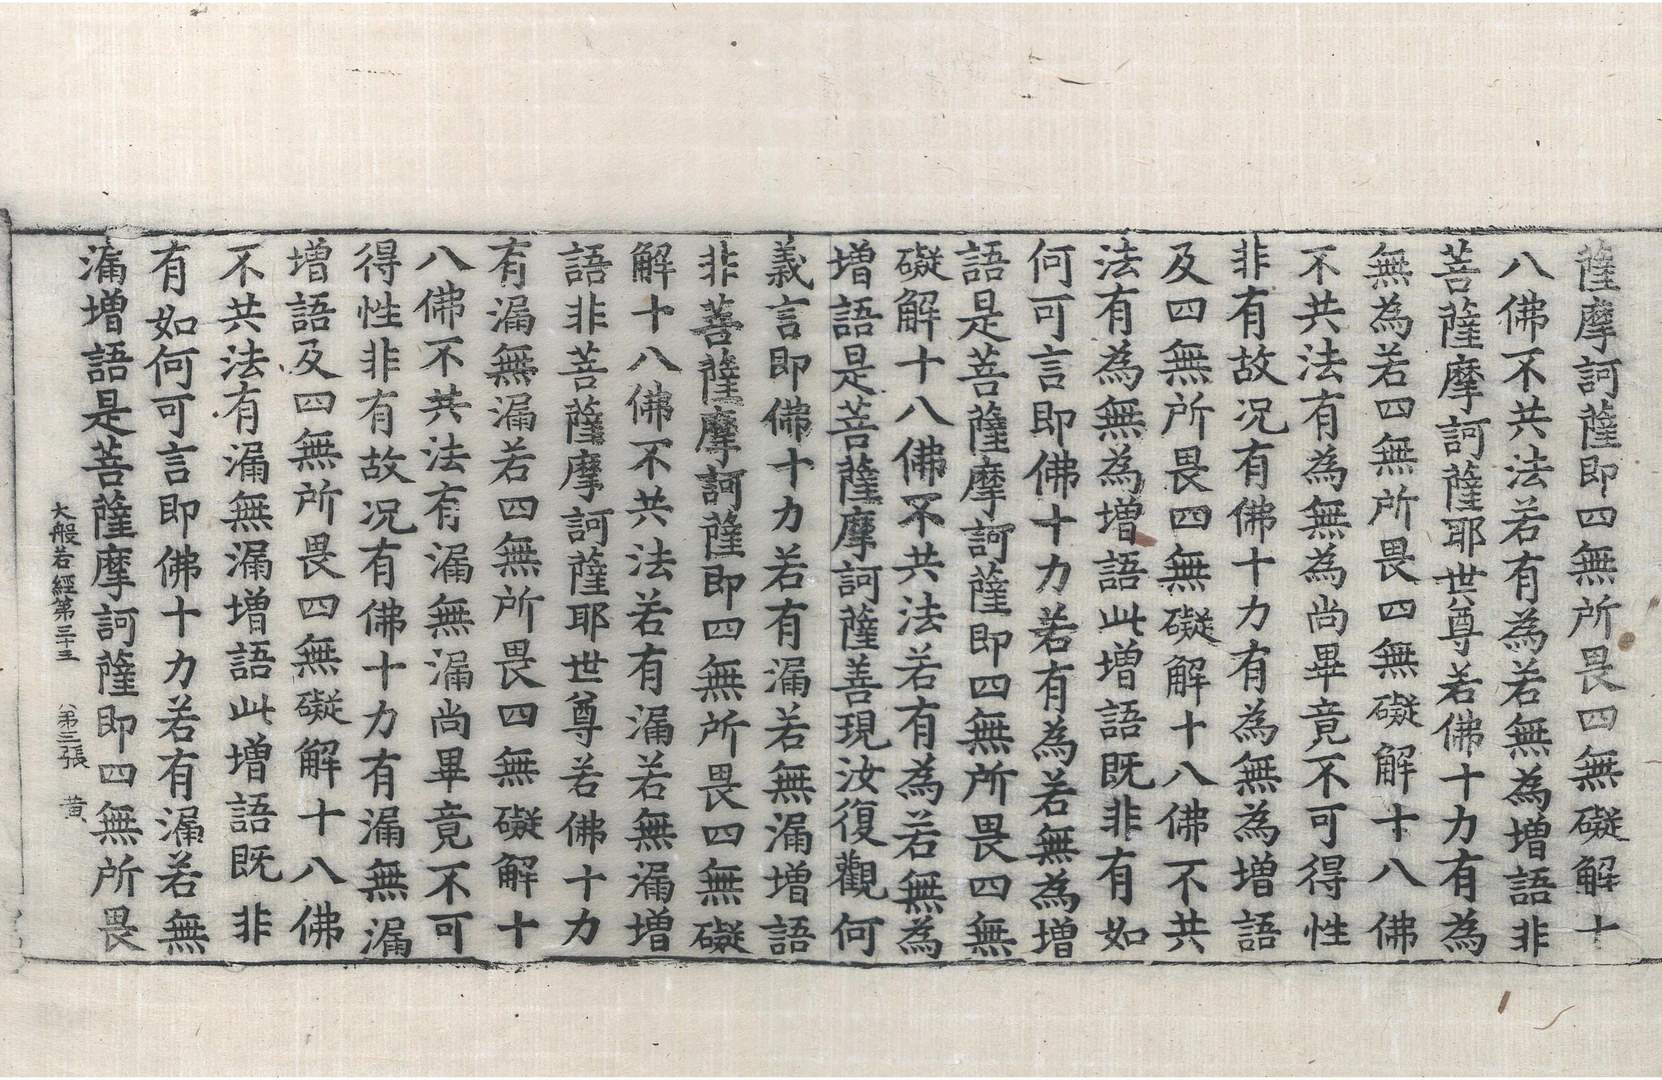 薩摩訶薩即四無所畏四無礙解十
八佛不共法若有為若無為增語非
菩薩摩訶薩耶世尊若佛十力有為
無為若四無所畏四無礙解十八佛
不共法有為無為尚畢竟不可得性
非有故况有佛十力有為無為增語
及四無所畏四無礙解十八佛不共
法有為無為增語此增語既非有如
何可言即佛十力若有為若無為增
語是菩薩摩訶薩即四無所畏四無
礙解十八佛不共法若有為若無為
增語是菩薩摩訶薩善現汝復觀何
義言即佛十力若有漏若無漏增語
非菩薩摩訶薩即四無所畏四無礙
解十八佛不共法若有漏若無漏增
語非菩薩摩訶薩耶世尊若佛十力
有漏無漏若四無所畏四無礙解十
八佛不共法有漏無漏尚畢竟不可
得性非有故况有佛十力有漏無漏
增語及四無所畏四無礙解十八佛
不共法有漏無漏增語此增語既非
有如何可言即佛十力若有漏若無
漏增語是菩薩摩訶薩即四無所畏
大般若經第三十三 第三張 黃